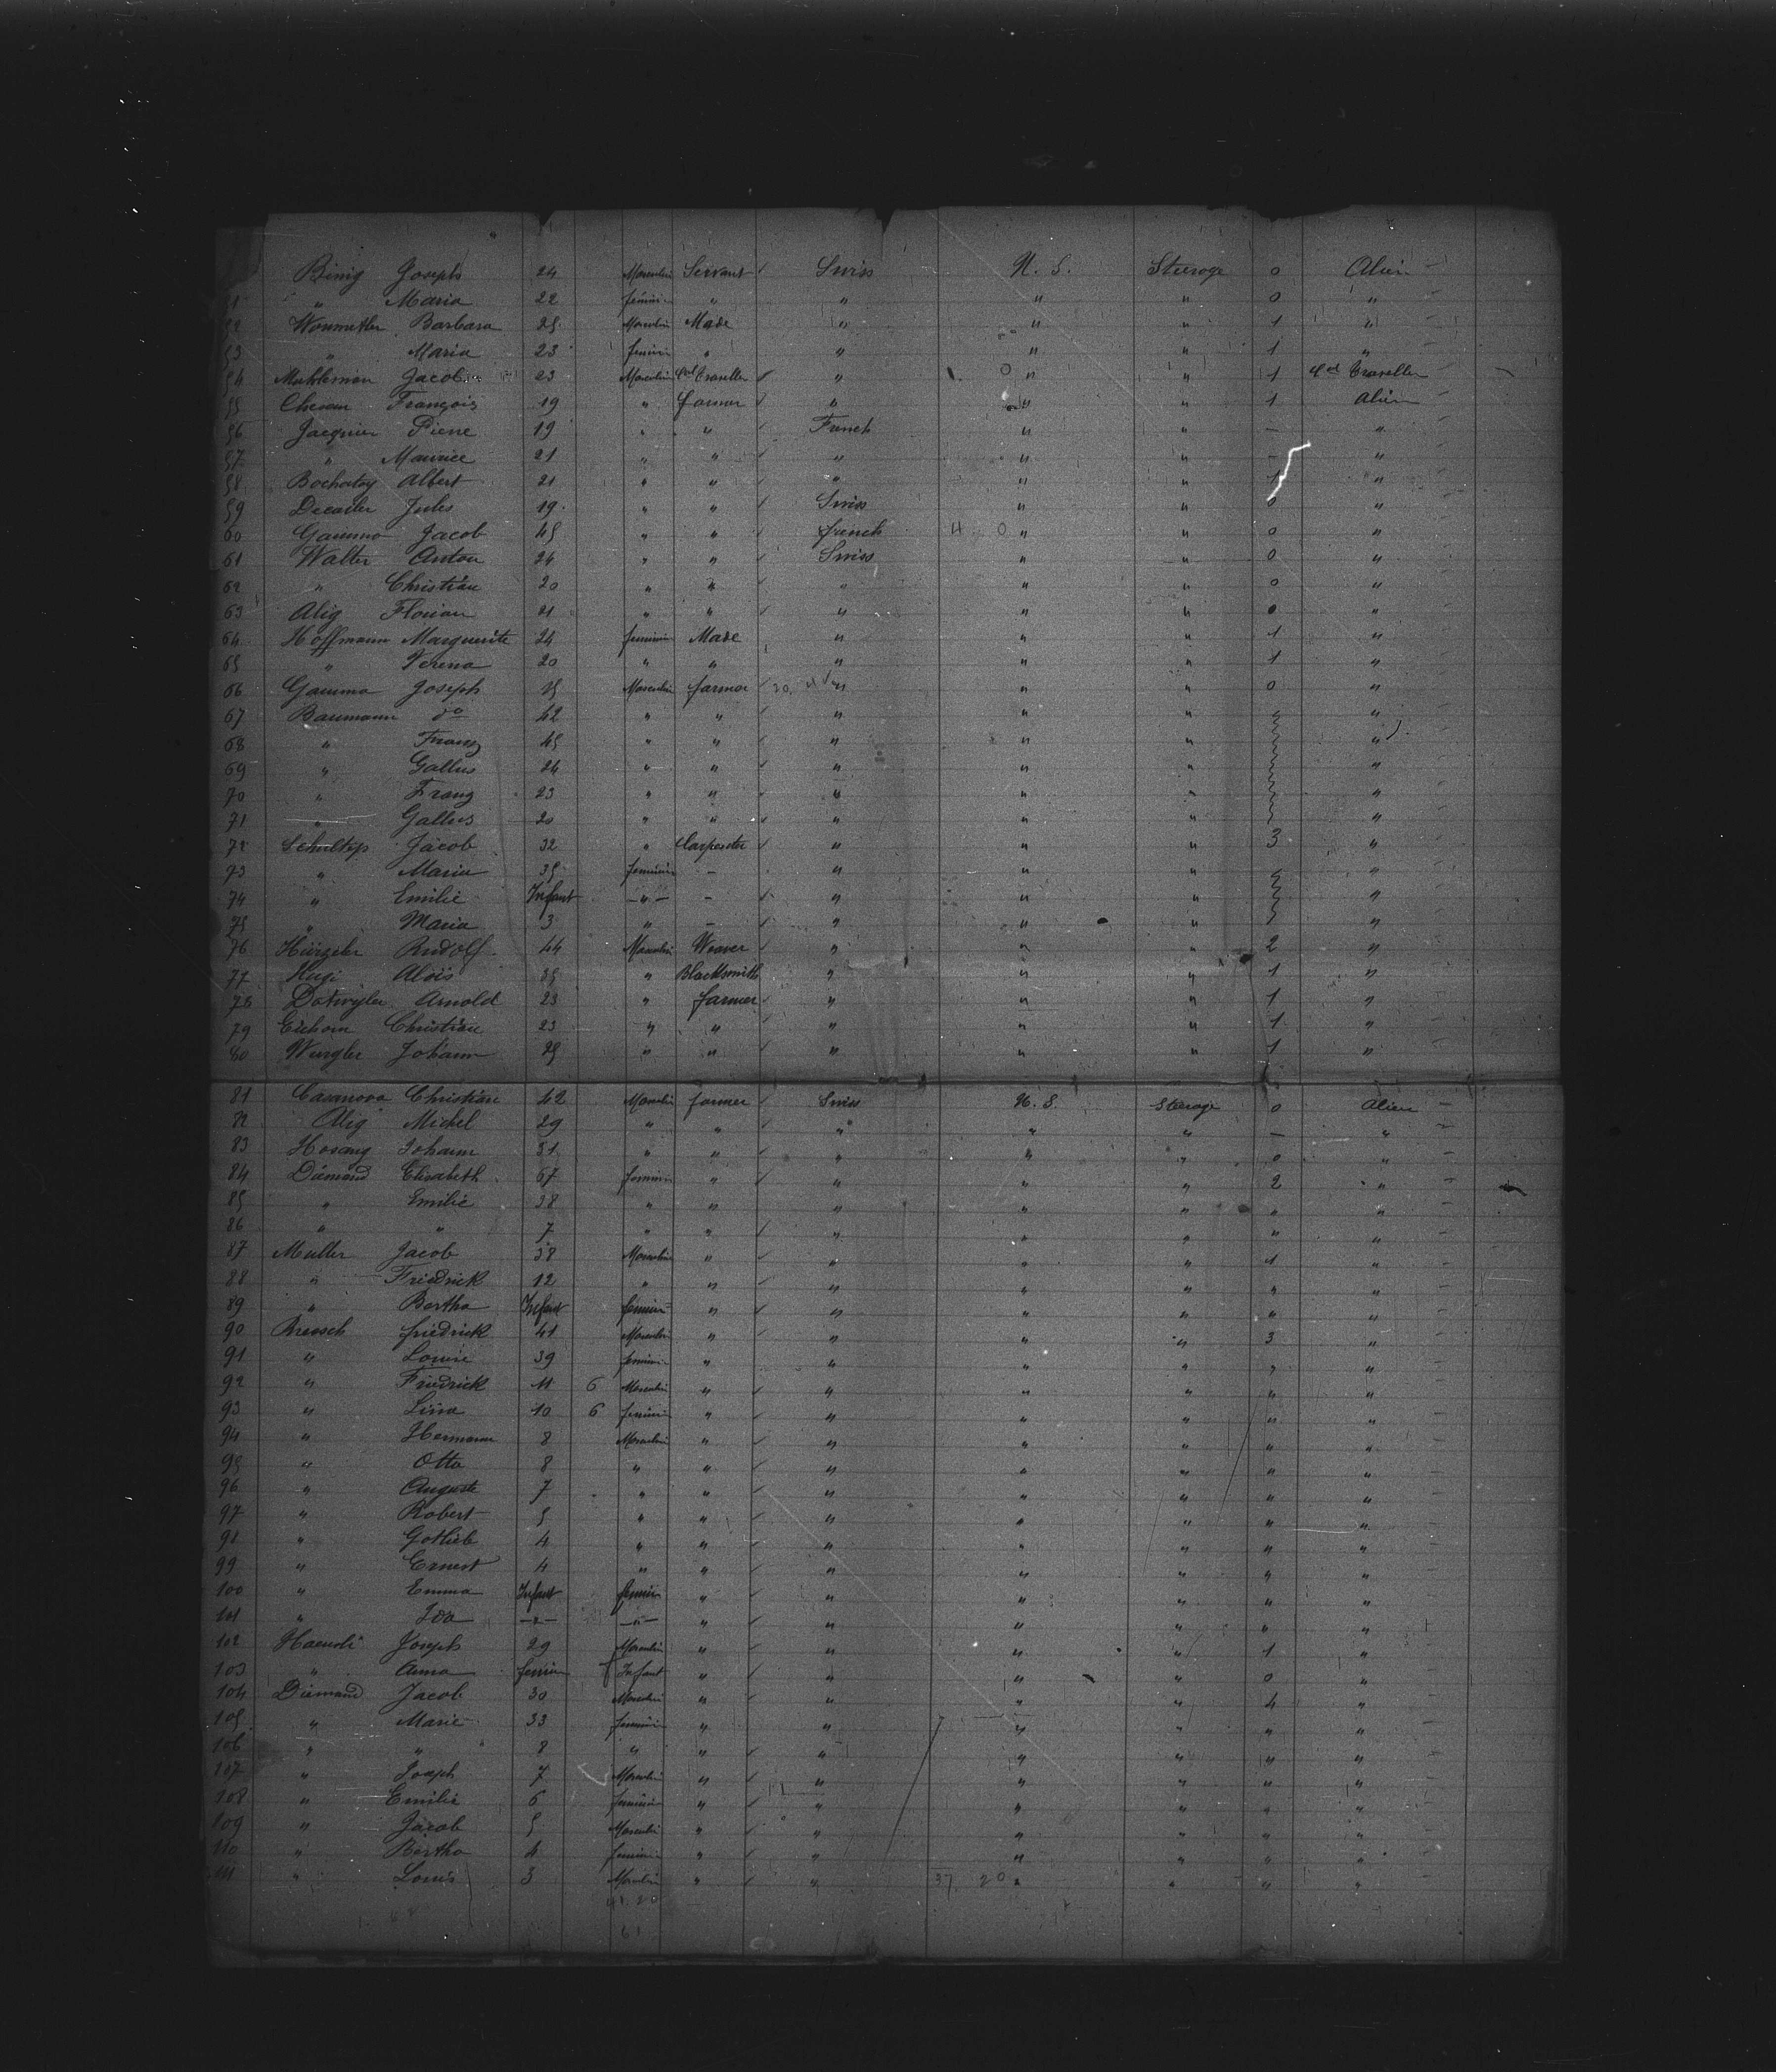 Binig Joseph 24 Masculin Servant Swiss U. S. Steerage 0 Alien
51 " Maria 22 feminin " " " " 0 "
52 Barbara 25 Masculin Made " " " 1 "
53 " Maria 23 feminin " " " " 1 "
54 Muhleman Jacob 23 Masculin Traveller " 0 " " 1 Traveller
55 François 19 " farmer " " " 1 Alien
56 Jacquier Pierre 19 " " French " " — "
57 " Maurice 21 " " " " " - "
58 Bochatay Albert 21 " " " " " 1 "
59 Jules 19 " " Swiss " " 0 "
60 Gamma Jacob 45 " " french 4 0 " " 0 "
61 Walter Anton 24 " " Swiss " " 0 "
62 " Christian 20 " " " " " 0 "
63 Alig Florian 21 " " " " " 0 "
64 Hoffmann Marguerite 24 feminin Made " " " 1 "
65 " Verena 20 " " " " " 1 "
66 Gamma Joseph Masculin farmer " " " 0 "
67 Baumann do 42 " " " " " "
68 " Franz 45 " " " " " "
69 " Gallus 24 " " " " " "
70 " Franz 23 " " " " " "
71 " Gallus 20 " " " " " "
72 Jacob 32 " Carpenter " " " 3 "
73 " Maria 35 feminin - " " " "
74 " Emilie Infant —"— - " " " "
75 " Maria 3 " - " " " "
76 Hürzeler Rudolf 44 Masculin Weaver " " " 2 "
77 Hugi Aloïs 35 " Blacksmith " " " 1 "
78 Dätwyler Arnold 23 " farmer " " " 1 "
79 Eichorn Christian 23 " " " " " 1 "
80 Wurgler Johann 25 " " " " " 1 "
81 Casanova Christian 42 Masculin farmer Swiss U. S. Steerage 0 Alien
82 Alig Michel 29 " " " " " — "
83 Hosang Johann 31 " " " " " 0 "
84 Diemand Elisabeth 67 feminin " " " " 2 "
85 " Emilie 38 " " " " " " "
86 " " 7 " " " " " " "
87 Muller Jacob 38 Masculin " " " " 1 "
88 " Friedrick 12 " " " " " " "
89 " Bertha Infant feminin " " " " " "
90 friedrick 41 Masculin " " " " 3 "
91 " Louise 39 feminin " " " " " "
92 " Friedrick 11 6 Masculin " " " " " "
93 " Lina 10 6 feminin " " " " " "
94 " Hermann 8 Masculin " " " " " "
95 " Otto 8 " " " " " " "
96 " Auguste 7 " " " " " " "
97 " Robert 5 " " " " " " "
98 " Gotlieb 4 " " " " " " "
99 " Ernest 4 " " " " " " "
100 " Emma Infant feminin " " " " " "
101 " Ida —"— —"— " " " " " "
102 Joseph 29 Masculin " " " " 1 "
103 " Anna feminin Infant " " " " 0 "
104 Diemand Jacob 30 Masculin " " " " 4 "
105 " Marie 33 feminin " " " " " "
106 " " 8 " " " " " " "
107 " Joseph 7 Masculin " " " " " "
108 " Emilie 6 feminin " " " " " "
109 " Jacob 5 Masculin " " " " " "
110 " Bertha 4 feminin " " " " " "
111 " Louis 3 Masculin " " 37 20 " " " "
61